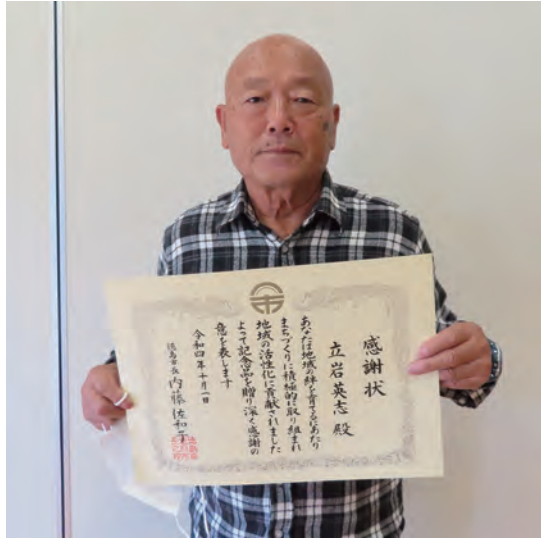 感謝状
立岩英志 殿
あなたは地域の絆を育てるにあたり
まちづくりに積極的に取り組まれ
地域の活性化に貢献されました
よって記念品を贈り深く感謝の
意を表します
令和四年十月一日
徳島市長 内藤佐和子